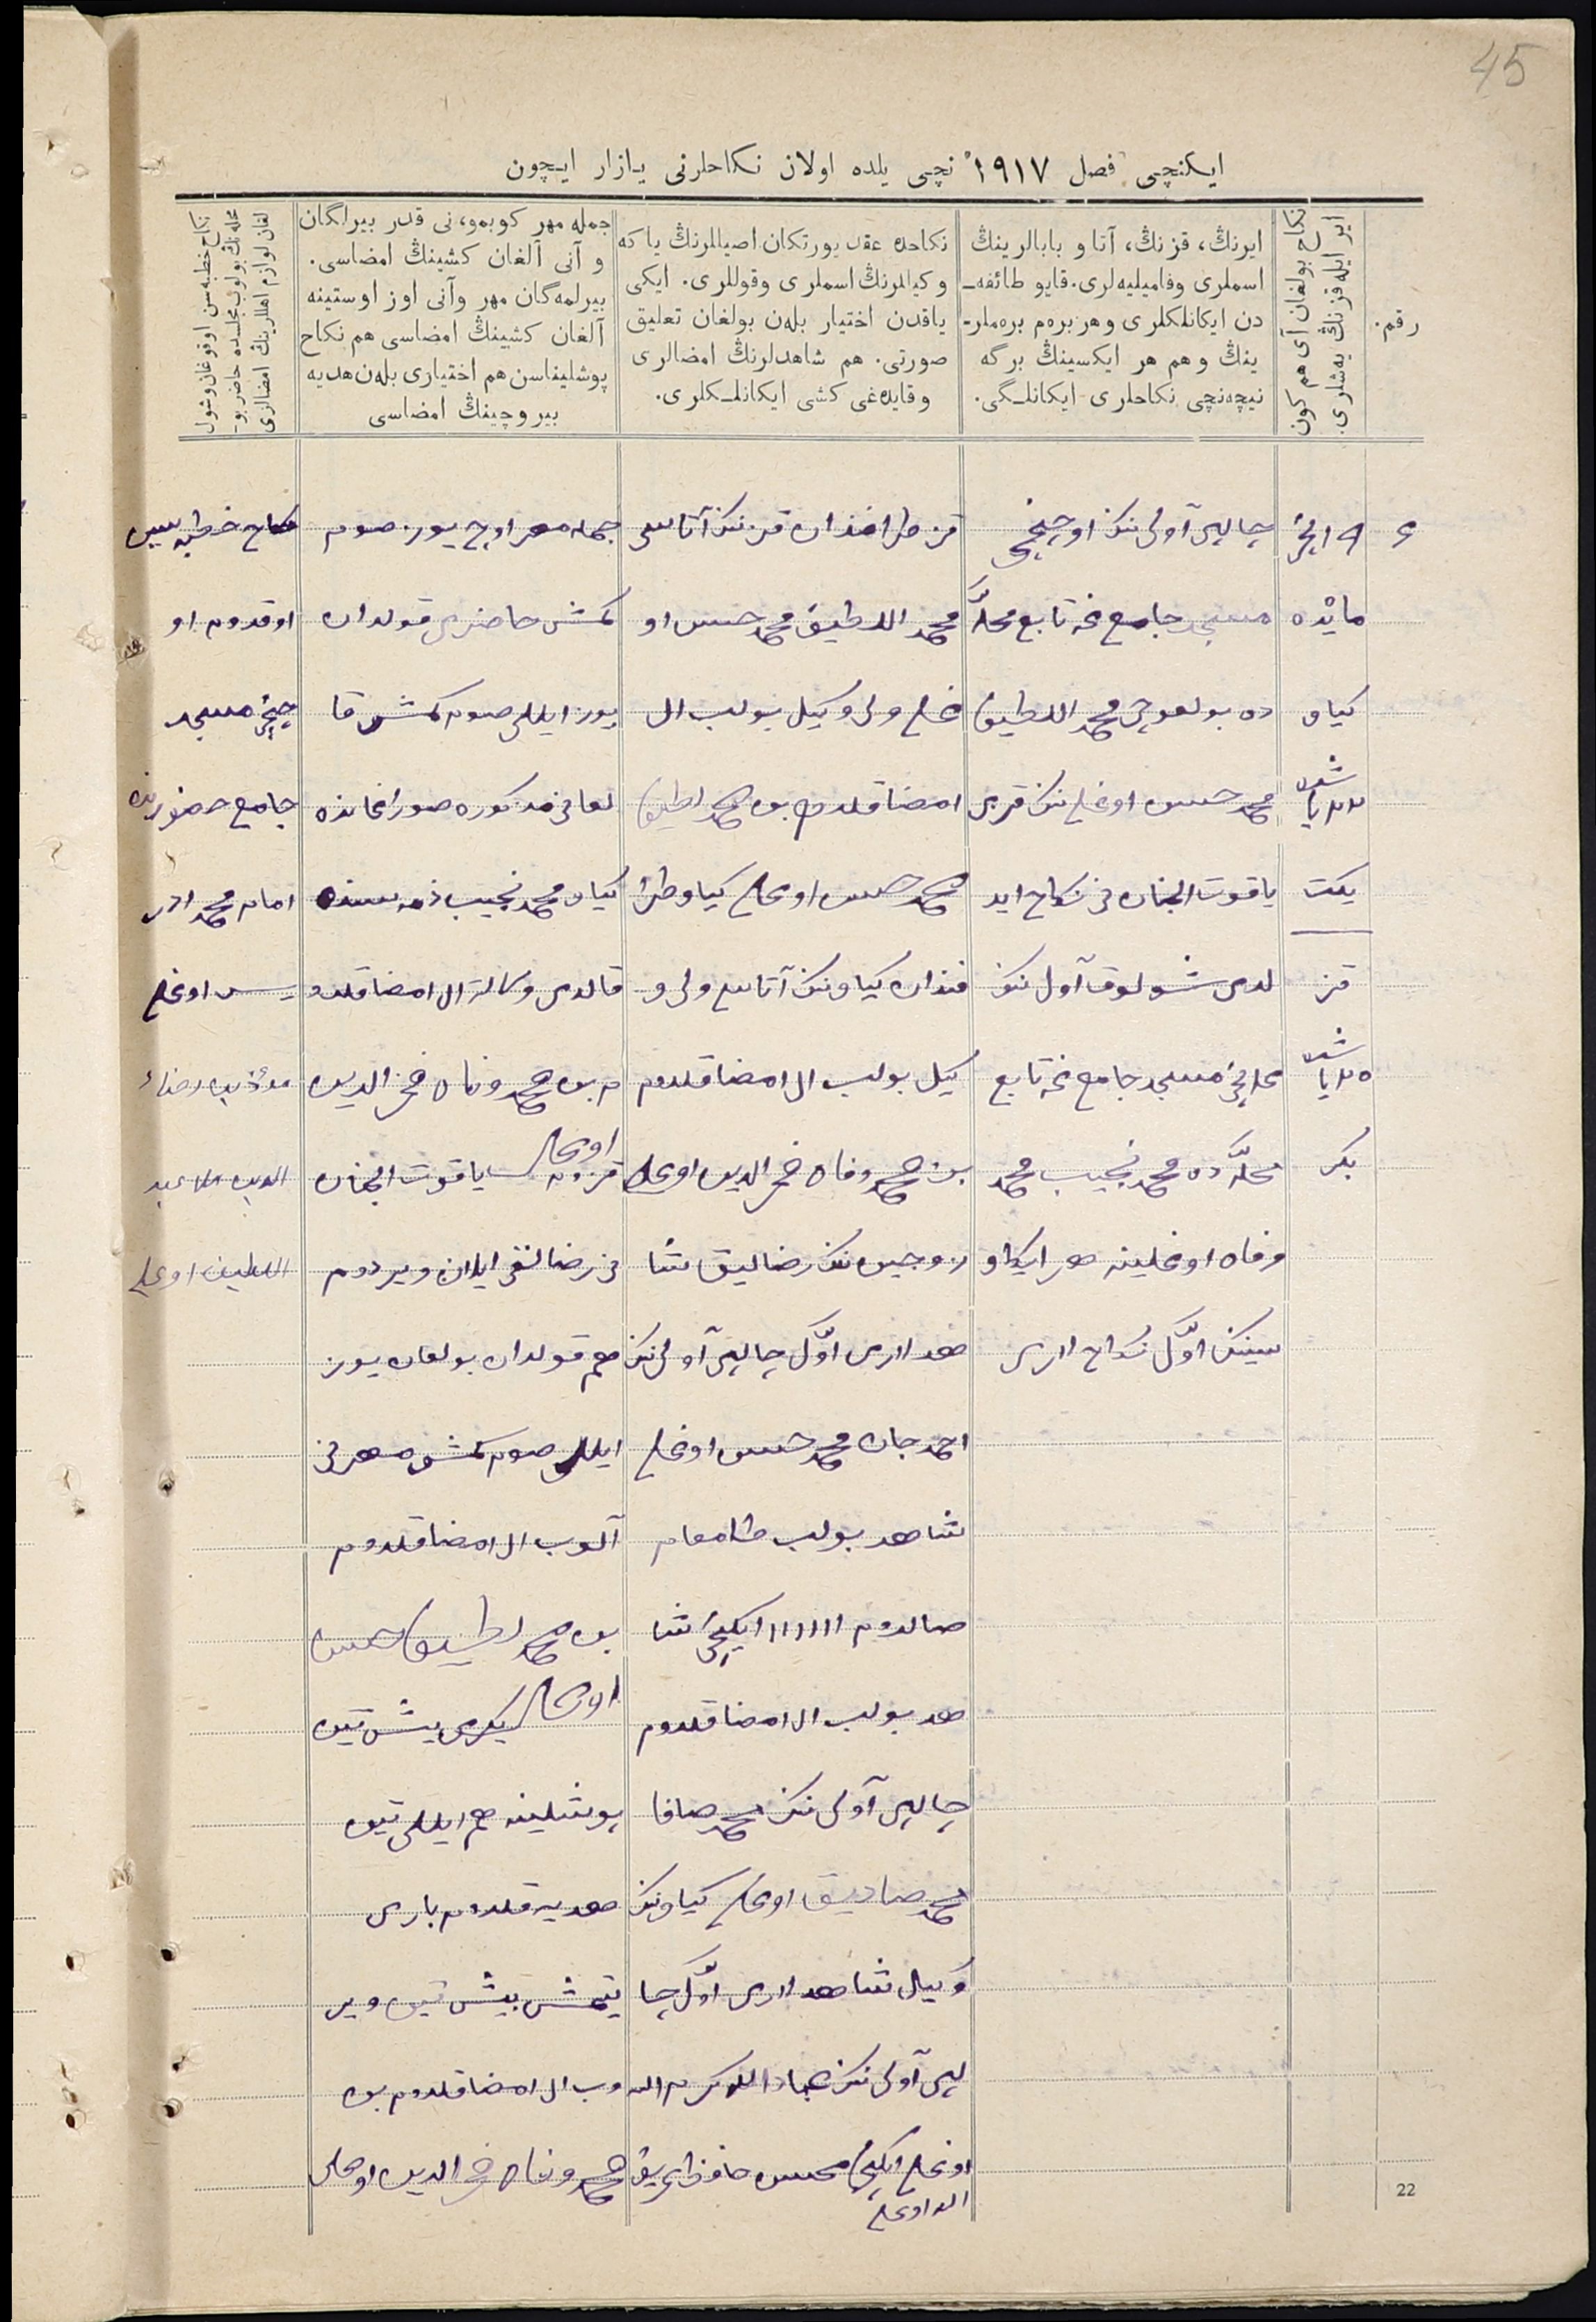 45
ایكنچی فصل ۱۹۱۷ نچی یلده اولان نكاحلرنی یازار ایچون
رقم.
نكاح بولغان آی هم كون
ایر ایله قزنڭ یه شلری.
ایرنڭ، قزنڭ، آتا و بابالرینڭ
اسملری وفامیلیه لری. قایو طائفه ـ
دن ایكانلكلری و هر بره م بره ملر-
ینڭ و هم هر ایكسینڭ برگه
نیچه نچی نكاحلری ایكانلـگی.
نكاحده عقد یورتكان اصیللرنڭ یا كه
و كیللرنڭ اسملری وقوللری. ایكی
یاقدن اختیار بلەن بولغان تعلیق
صورتی. هم شاهدلرنڭ امضالری
و قایده غی كشی ایكانلـكلری.
جمله مهر كوبمو، نی قدر بیرلگان
و آنی آلغان كشینڭ امضاسی.
بیرلمه گان مهر وآنی اوز اوستینه
آلغان كشینڭ امضاسی هم نكاح
پوشلیناسن هم اختیاری بلەن هدیه
بیروچینڭ امضاسی
نكاح خطبه سن اوقوغان وشول
محله نڭ بولوب مجلسده حاضر بو-
لغان لوازم اهللرینڭ امضالری
۶
مائده
كیاو
یكت
قز
بكر
چالپی آولی ننڭ اوچنچی
مسجد جامع غه تابع محلّه
ده بولغوچی محمد اللطیف
محمد حسن اوغلی ننڭ قزی
یاقوت الجنان نی نكاح اید
لدی شولوق آول ننڭ
مسجد جامع غه تابع
محلّه ده محمد نجیب محمد
وفاه اوغلینه هر ایكاو
سینڭ اوّل نكاح لاری
قز طرافندان قز ننڭ آتاسی
محمد اللطیف محمد حسن او
غلی ولی وكیل بولب ال
امضا قلدم بن محمد لطیف
محمد حسن اوغلی كیاو طرا
فندان كیاو ننڭ آتاسی ولی و
كیل بولب ال امضا قلدوم
بن محمد وفاه فخر الدین اوغلی
زوجین ننڭ رضالیق شا
هد لاری اوّل چالپی آولی ننڭ
احمد جان محمد حسن اوغلی
شاهد بولب طامغام
صالدوم ااااااا ایكنچی شا
هد بولب ال امضا قلدوم
چالپی آولی ننڭ محمد صافا
محمد صادیق اوغلی كیاو ننڭ
وكیل شاهد لاری اوّل چا
لپی آولی ننڭ عباد الله كرم الله
اوغلی ایكنچی محسن حافظ
الله اوغلی
جمله مهر اوچ یوز صوم
كمش حاضری قولدان
یوز ایللی صوم كمش قا
لغانی مذكوره صورانغانده
كیاو محمد نجیب ذمه سنده
قالدی وكالة ال امضا قلدو
م بن محمد وفاه فخر الدین
اوغلی
قزوم یاقوت الجنان
نی رضالقی ایلان ویردوم
هم قولدان بولغان یوز
ایللی صوم كمش مهر نی
آلوب ال امضا قلدوم
بن محمد لطیف حسن
اوغلی یكرمی بیش تین
پوشلینه هم ایللی تین
هدیه قلدوم باری
یتمش بیش تین ویر
وب ال امضا قلدوم بن
محمد وفاه فخر الدین اوغلی
نكاح خطبه سین
اوقدوم او
چنچی مسجد
جامع حضورنده
امام محمد ادر
یس اوغلی
الدین ملا عبد
اللطیف اوغلی
22